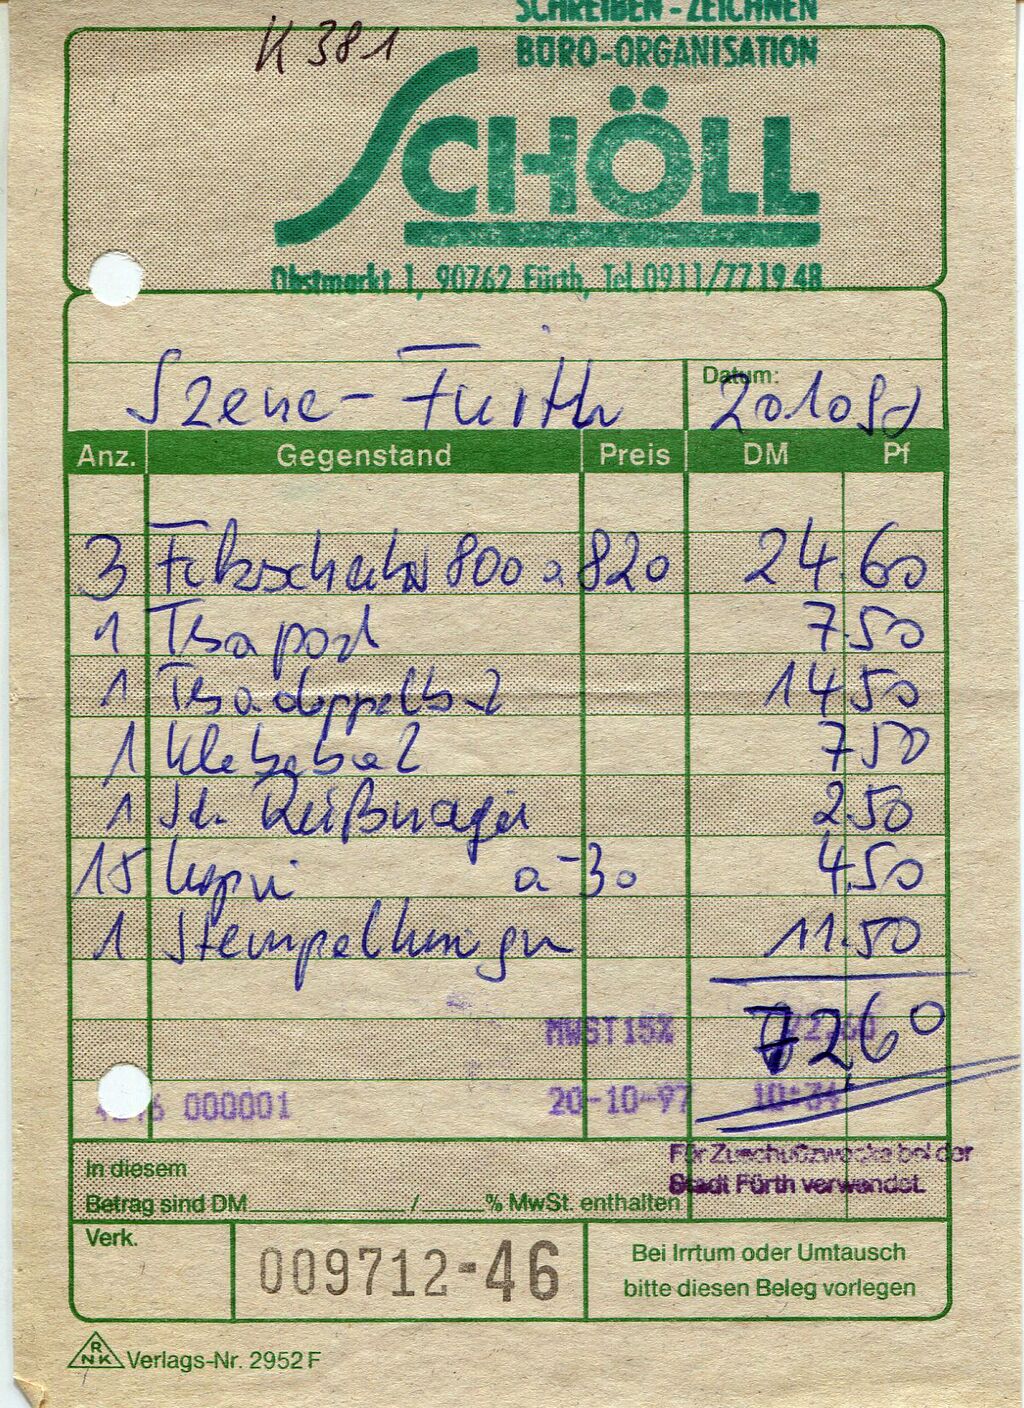 SCHREIBEN - ZEICHNEN
K 381
BÜRO-ORGANISATION
SCHÖLL
Obstmarkt 1, 90762 Fürth, Tel. 0911/77 19 48
Szene - Fürth
Datum: 201097
Anz. Gegenstand Preis DM Pf
3 800 a 820 24.60
1 Tesa 7.50
1 Tesa doppelb 14.50
1 7.50
1 Reißnägel 2.50
15 Kopien a -30 4.50
1 11.50
MWST15% 72.60
72,60
000001 20-10-97 10:34
Für Zuschußzwecke bei der
Stadt Fürth verwendet.
In diesem
Betrag sind DM / % MwSt. enthalten
Verk.
009712-46
Bei Irrtum oder Umtausch
bitte diesen Beleg vorlegen
RNK Verlags-Nr. 2952 F